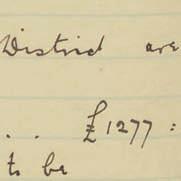 District are
. . £1277 :
to be